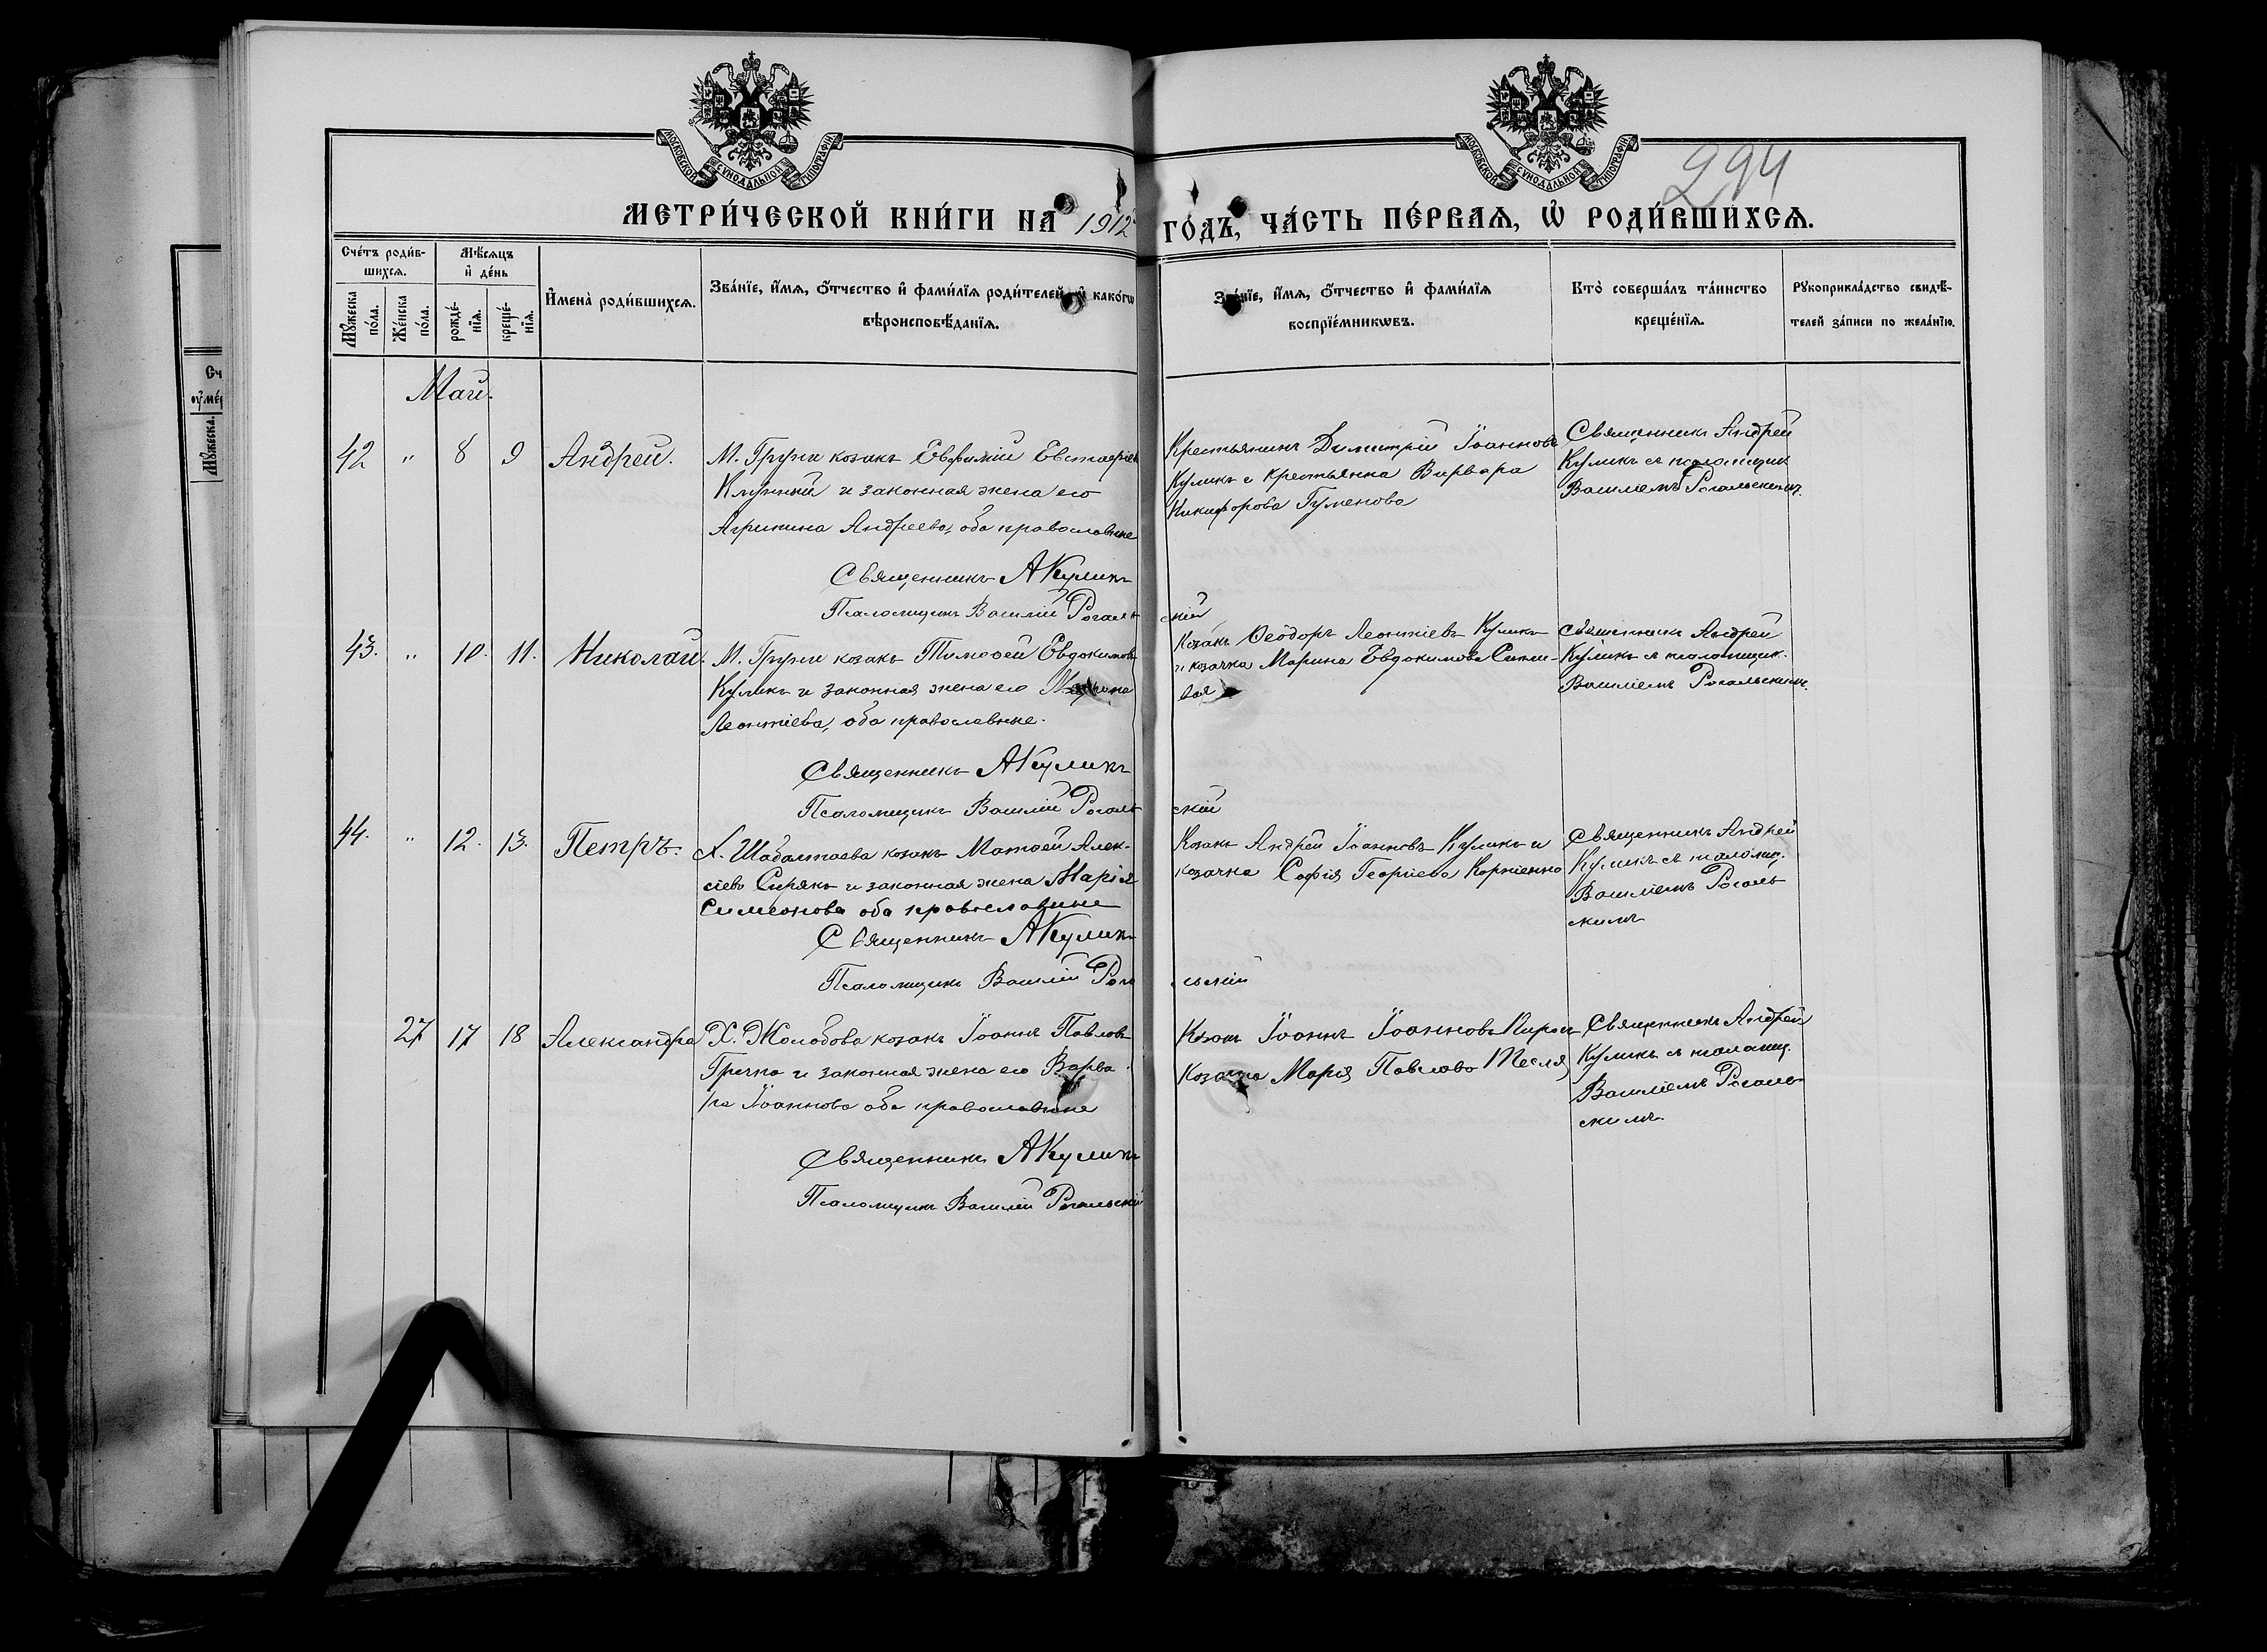 МОСКОВСКОЙ СУНОДАЛЬНОЙ ТИПОГРАФІИ
МОСКОВСКОЙ СУНОДАЛЬНОЙ ТИПОГРАФІИ
294
МЕТРИ́ЧЕСКОЙ КНИ́ГИ НА 1912 ГО́ДЪ, ЧА́СТЬ ПЕ́РВАѦ, Ѡ҆ РОДИ́ВШИХСѦ.
Сче́тъ роди́в-
шихсѧ.
Мꙋ́жеска
по́ла.
Же́нска
по́ла.
Мѣ́сѧцъ
и҆ де́нь
рожде́-
нїѧ.
креще́-
нїѧ.
И҆мена̀ роди́вшихсѧ.
Зва́нїе, и҆́мѧ, ѻ҆́тчество и҆ фами́лїѧ роди́телей, и҆ како́гѡ
вѣроисповѣ́данїѧ.
Зва́нїе, и҆́мѧ, ѻ҆́тчество и҆ фами́лїѧ
воспрїе́мникѡвъ.
Кто̀ соверша́лъ та́инство
креще́нїѧ.
Рꙋкоприкла́дство свидѣ́-
телей за́писи по жела́нїю.
Сч
ᲂу҆ме́р
Мꙋ́жеска.
Май.
42 " 8 9 Андрей.
М. Груни козакъ Евфимій Евстафіев
и законная жена его
Агрипина Андреева, оба православные
Священникъ АКуликъ
Псаломщикъ Василій Рогаль
скій
Крестьянинъ Димитрій Іоанновъ
Куликъ и крестьянка Варвара
Никифорова Гуменова
Священникъ Андрей
Куликъ съ псаломщик
Василіемъ Рогальскимъ.
43. " 10. 11. Николай.
М. Груни козакъ Тимофей Евдокимовъ
Куликъ и законная жена его
Леонтіева, оба православные.
Священникъ АКуликъ
Псаломщикъ Василій Рогаль
скій
Козакъ Ѳеодоръ Леонтіевъ Куликъ
и козачка Марина Евдокимова
вая
Священникъ Андрей
Куликъ съ псаломщик.
Василіемъ Рогальскимъ.
44. " 12. 13. Петръ.
Х. Шабалтаева козакъ Матѳей Алек-
сіевъ Сирякъ и законная жена Марія
Симеонова оба православные
Священникъ АКуликъ
Псаломщикъ Василій Рога
льскій
Козакъ Андрей Іоанновъ Куликъ и
козачка Софія Георгіева Корніенко
Священникъ Андрей
Куликъ съ псаломщ.
Василіемъ Рогаль
скимъ
27 17 18 Александра
Х. Жолобова козакъ Іоаннъ Павловъ
Гречка и законная жена его Варва
ра Іоаннова оба православные
Священникъ АКуликъ
Псаломщикъ Василій Рогальскій
Козакъ Іоаннъ Іоанновъ
Козачка Марія Павлова Тесля
Священникъ Андрей
Куликъ съ псаломщ.
Василіемъ Рогаль
скимъ